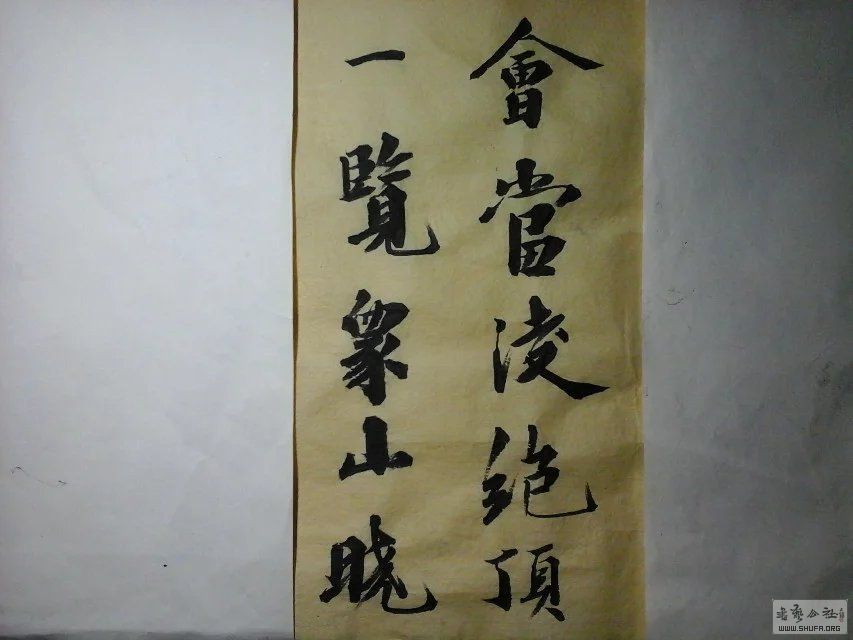 會當凌絕頂
一覽眾山曉
書藝公社
WWW.SHUFA.ORG